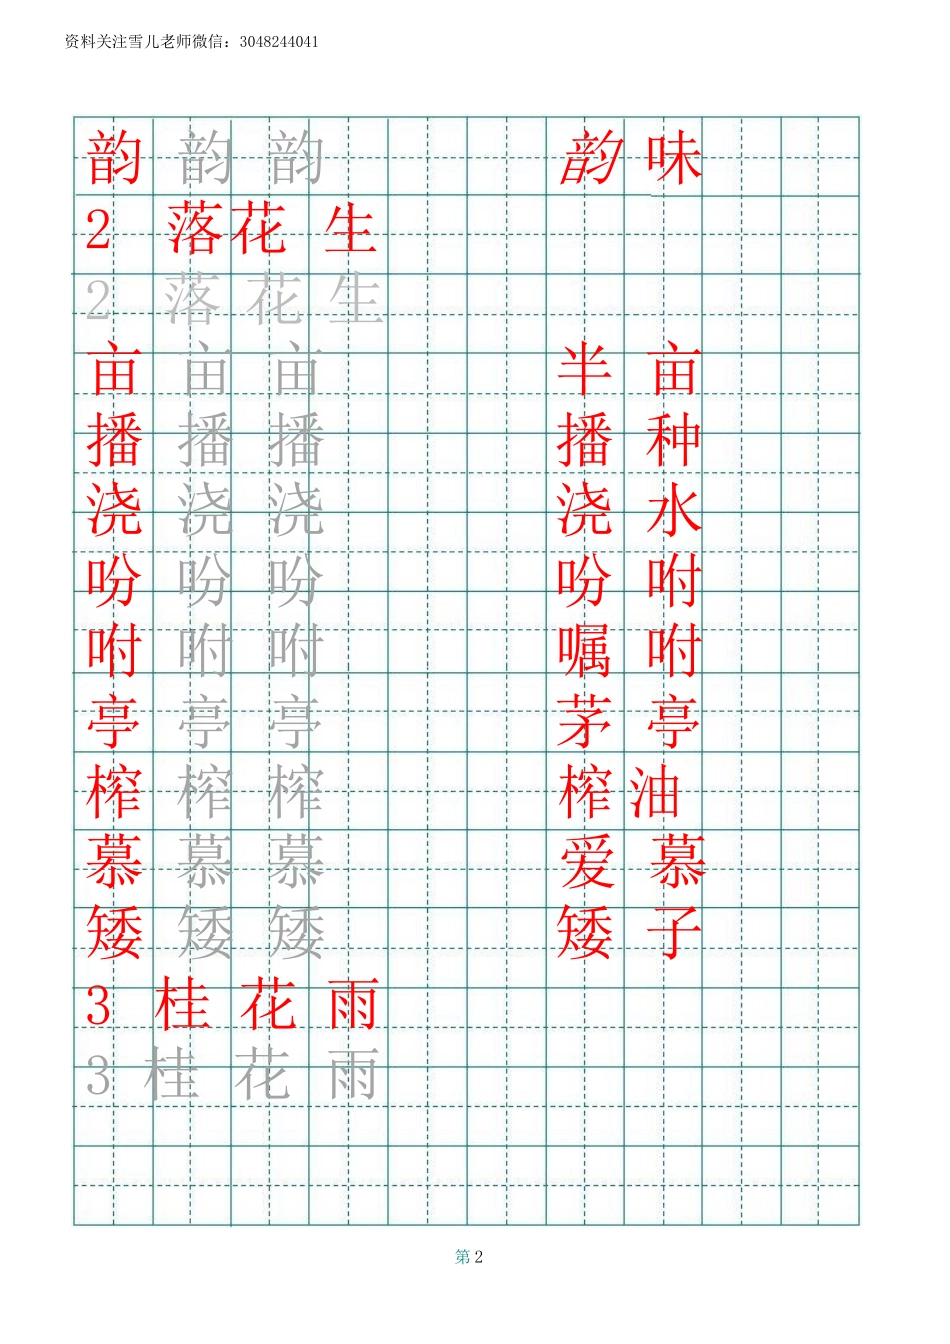 资料关注雪儿老师微信：3048244041
韵 韵 韵 韵 味
2 落 花 生
2 落 花 生
亩 亩 亩 半 亩
播 播 播 播 种
浇 浇 浇 浇 水
吩 吩 吩 吩 咐
咐 咐 咐 嘱 咐
亭 亭 亭 茅 亭
榨 榨 榨 榨 油
慕 慕 慕 爱 慕
矮 矮 矮 矮 子
3 桂 花 雨
3 桂 花 雨
第 2